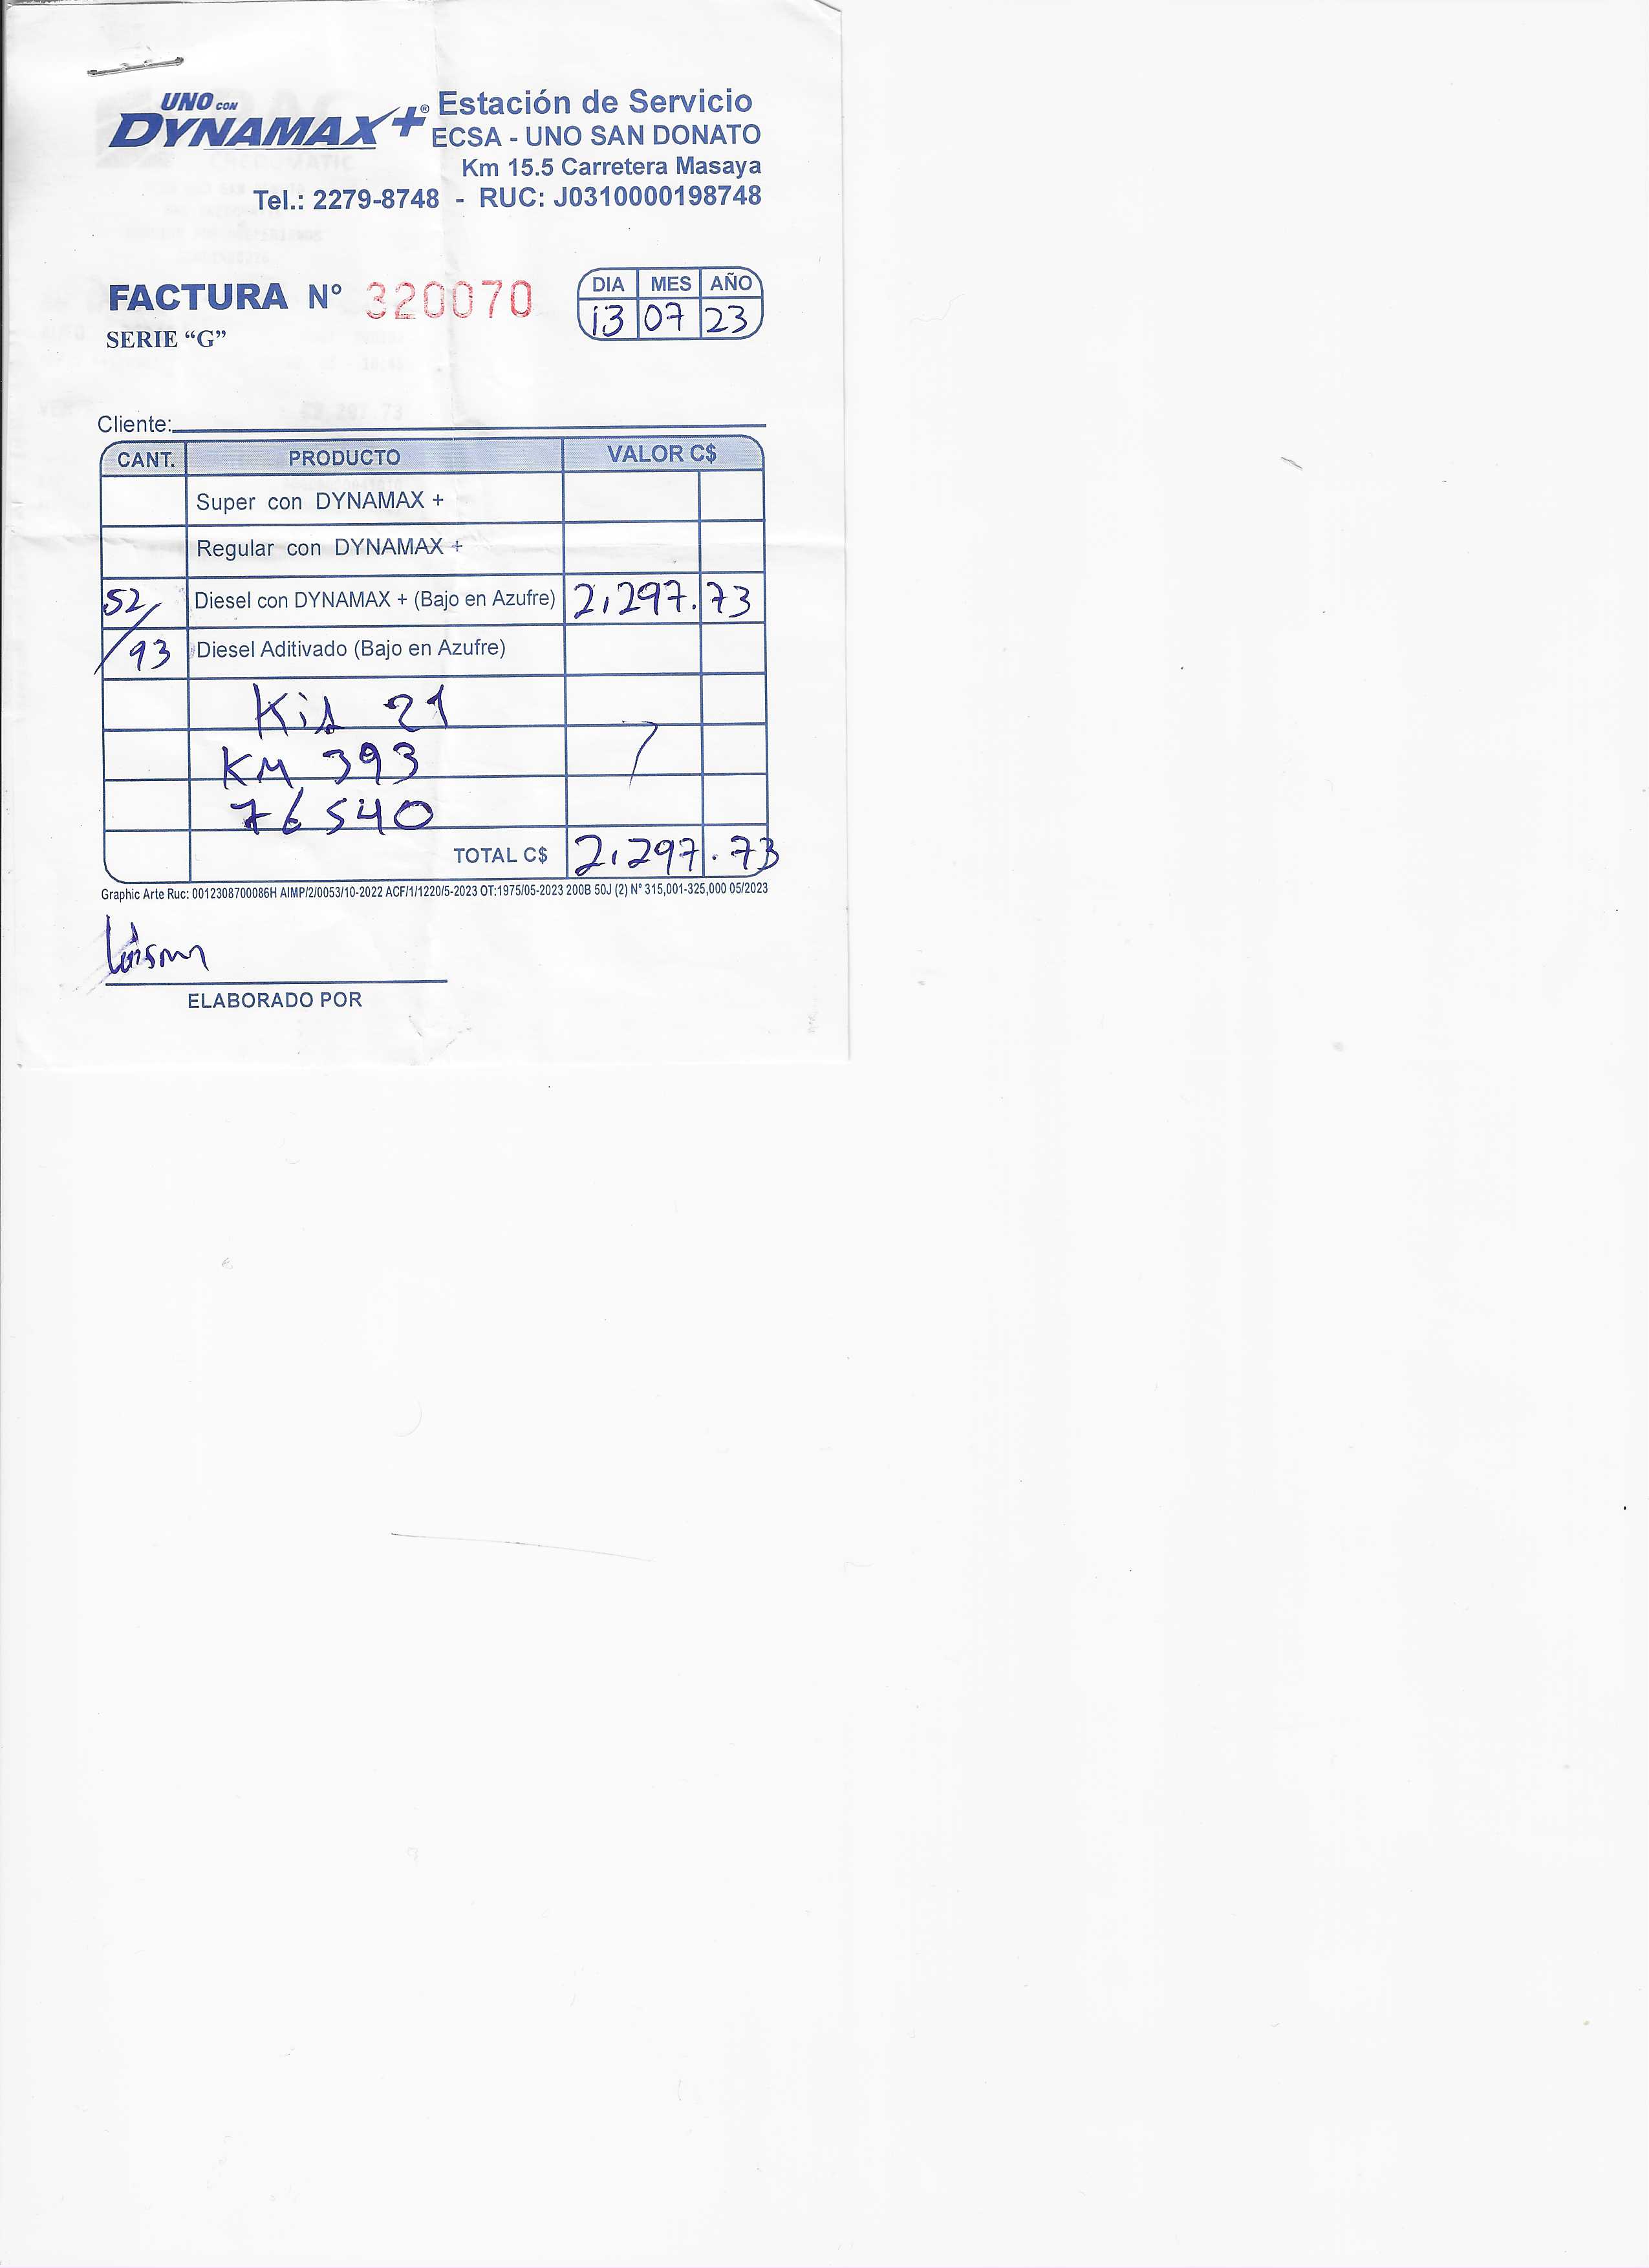 UNO CON
DYNAMAX+® Estación de Servicio
ECSA - UNO SAN DONATO
Km 15.5 Carretera Masaya
Tel.: 2279-8748 - RUC: J0310000198748
FACTURA N° 320070
DIA MES AÑO
13 07 23
SERIE “G”
Cliente:
CANT. PRODUCTO VALOR C$
Super con DYNAMAX +
Regular con DYNAMAX +
52/ Diesel con DYNAMAX + (Bajo en Azufre) 2,297.73
93 Diesel Aditivado (Bajo en Azufre)
Kia 21
KM 393
76540
TOTAL C$ 2,297.73
Graphic Arte Ruc: 0012308700086H AIMP/2/0053/10-2022 ACF/1/1220/5-2023 OT:1975/05-2023 200B 50J (2) N° 315,001-325,000 05/2023
ELABORADO POR